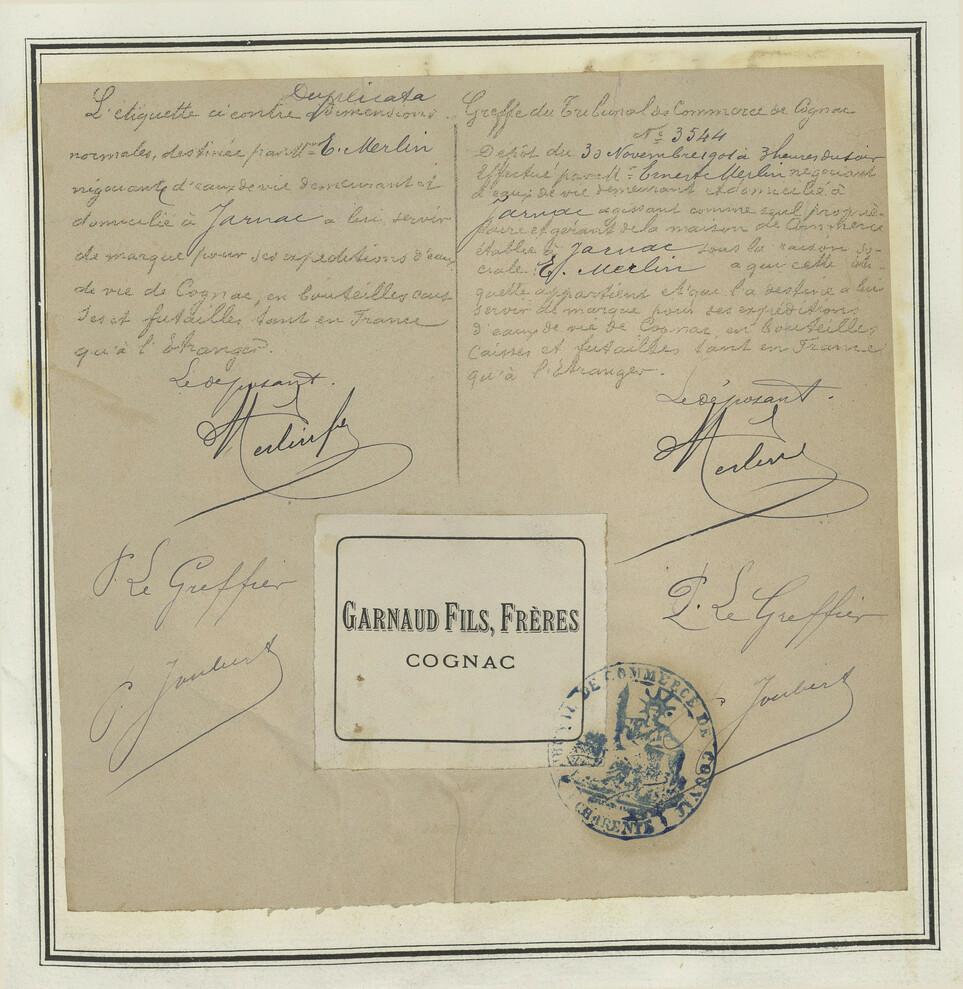 Duplicata
L'étiquette ci contre Dimensions
normales, destinée par Mr E. Merlin
négociant d'eaux de vie demeurant et
domicilié à Jarnac a lui servir
de marque pour ses expéditions d'eaux
de vie de Cognac, en bouteilles cais
ses et futailles tant en France
qu'à l'Etranger.
Le déposant.
Merlin
P. Le Greffier
P. Joubert
Greffe du Tribunal de Commerce de Cognac
No 3544
Dépôt du 30 Novembre 1901 à 3 heures du soir
Effectué par Mr Ernest Merlin négociant
d'eaux de vie demeurant et domicilié à
Jarnac agissant comme seul proprié-
taire et gérant de la maison de Commerce
établie à Jarnac sous la raison so-
ciale E. Merlin a qui cette éti-
quette appartient et que l'a destine a lui
servir de marque pour ses expéditions
d'eaux de vie de Cognac, en bouteilles
caisses et futailles tant en France
qu'à l'Etranger.
Le déposant.
Merlin
P. Le Greffier
Joubert
GARNAUD FILS, FRÈRES
COGNAC
DE COMMERCE DE
CHARENTE